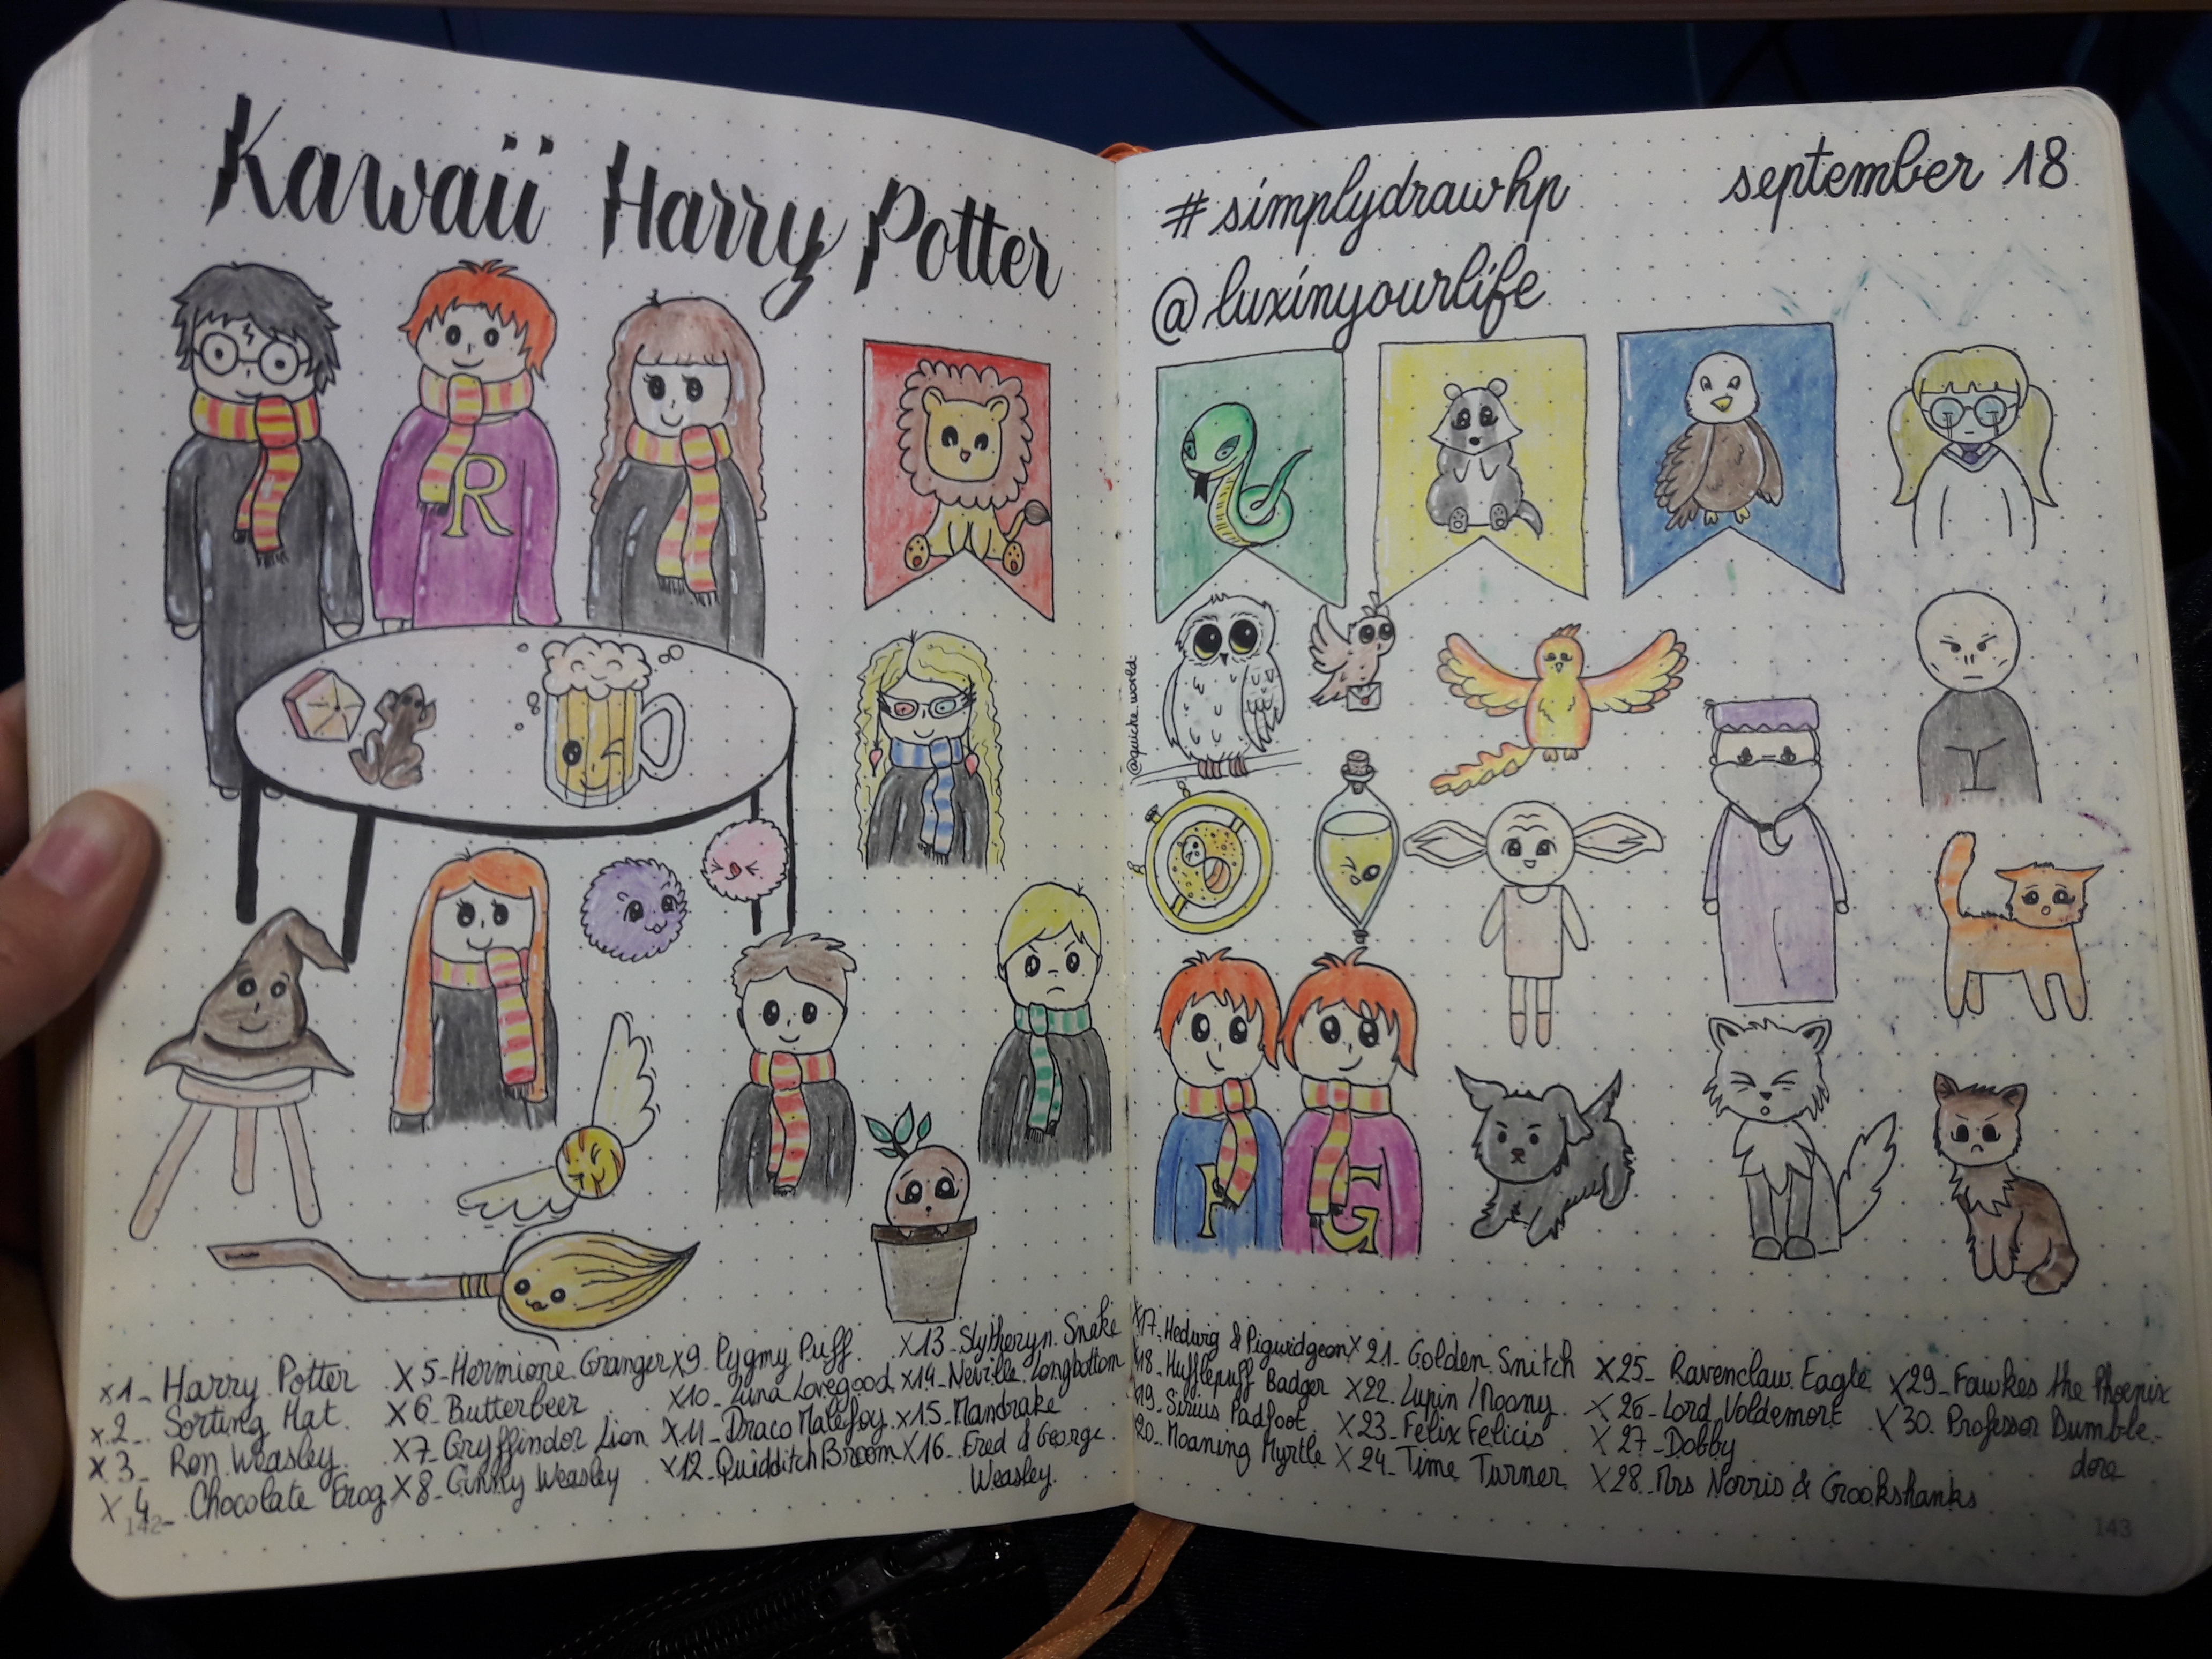 Kawaii Harry Potter
#simplydrawhp
september 18
@luxinyourlife
R
@quiche_world
F
G
x1_ Harry Potter
x2_ Sorting Hat
x3_ Ron Weasley
x4_ Chocolate Frog
x5_Hermione Granger
x6_Butterbeer
x7_ Gryffindor Lion
x8_ Ginny Weasley
x9_ Pygmy Puff
x10_ Luna Lovegood
x11_ Draco Malefoy
x12_Quidditch Broom
x13_ Slytheryn Snake
x14_ Neville Longbottom
x15_ Mandrake
x16_ Fred & George
Weasley
x17_ Hedwig & Pigwidgeon
x18_ Hufflepuff Badger
x19_ Sirius Padfoot
x20_ Moaning Myrtle
x21_ Golden Snitch
x22_ Lupin / Moony
x23_ Felix Felicis
x24_ Time Turner
x25_ Ravenclaw Eagle
x26_ Lord Voldemort
x27_Dobby
x28_Mrs Norris & Crookshanks
x29_ Fawkes the Phoenix
x30_ Professor Dumble-
dore
142
143